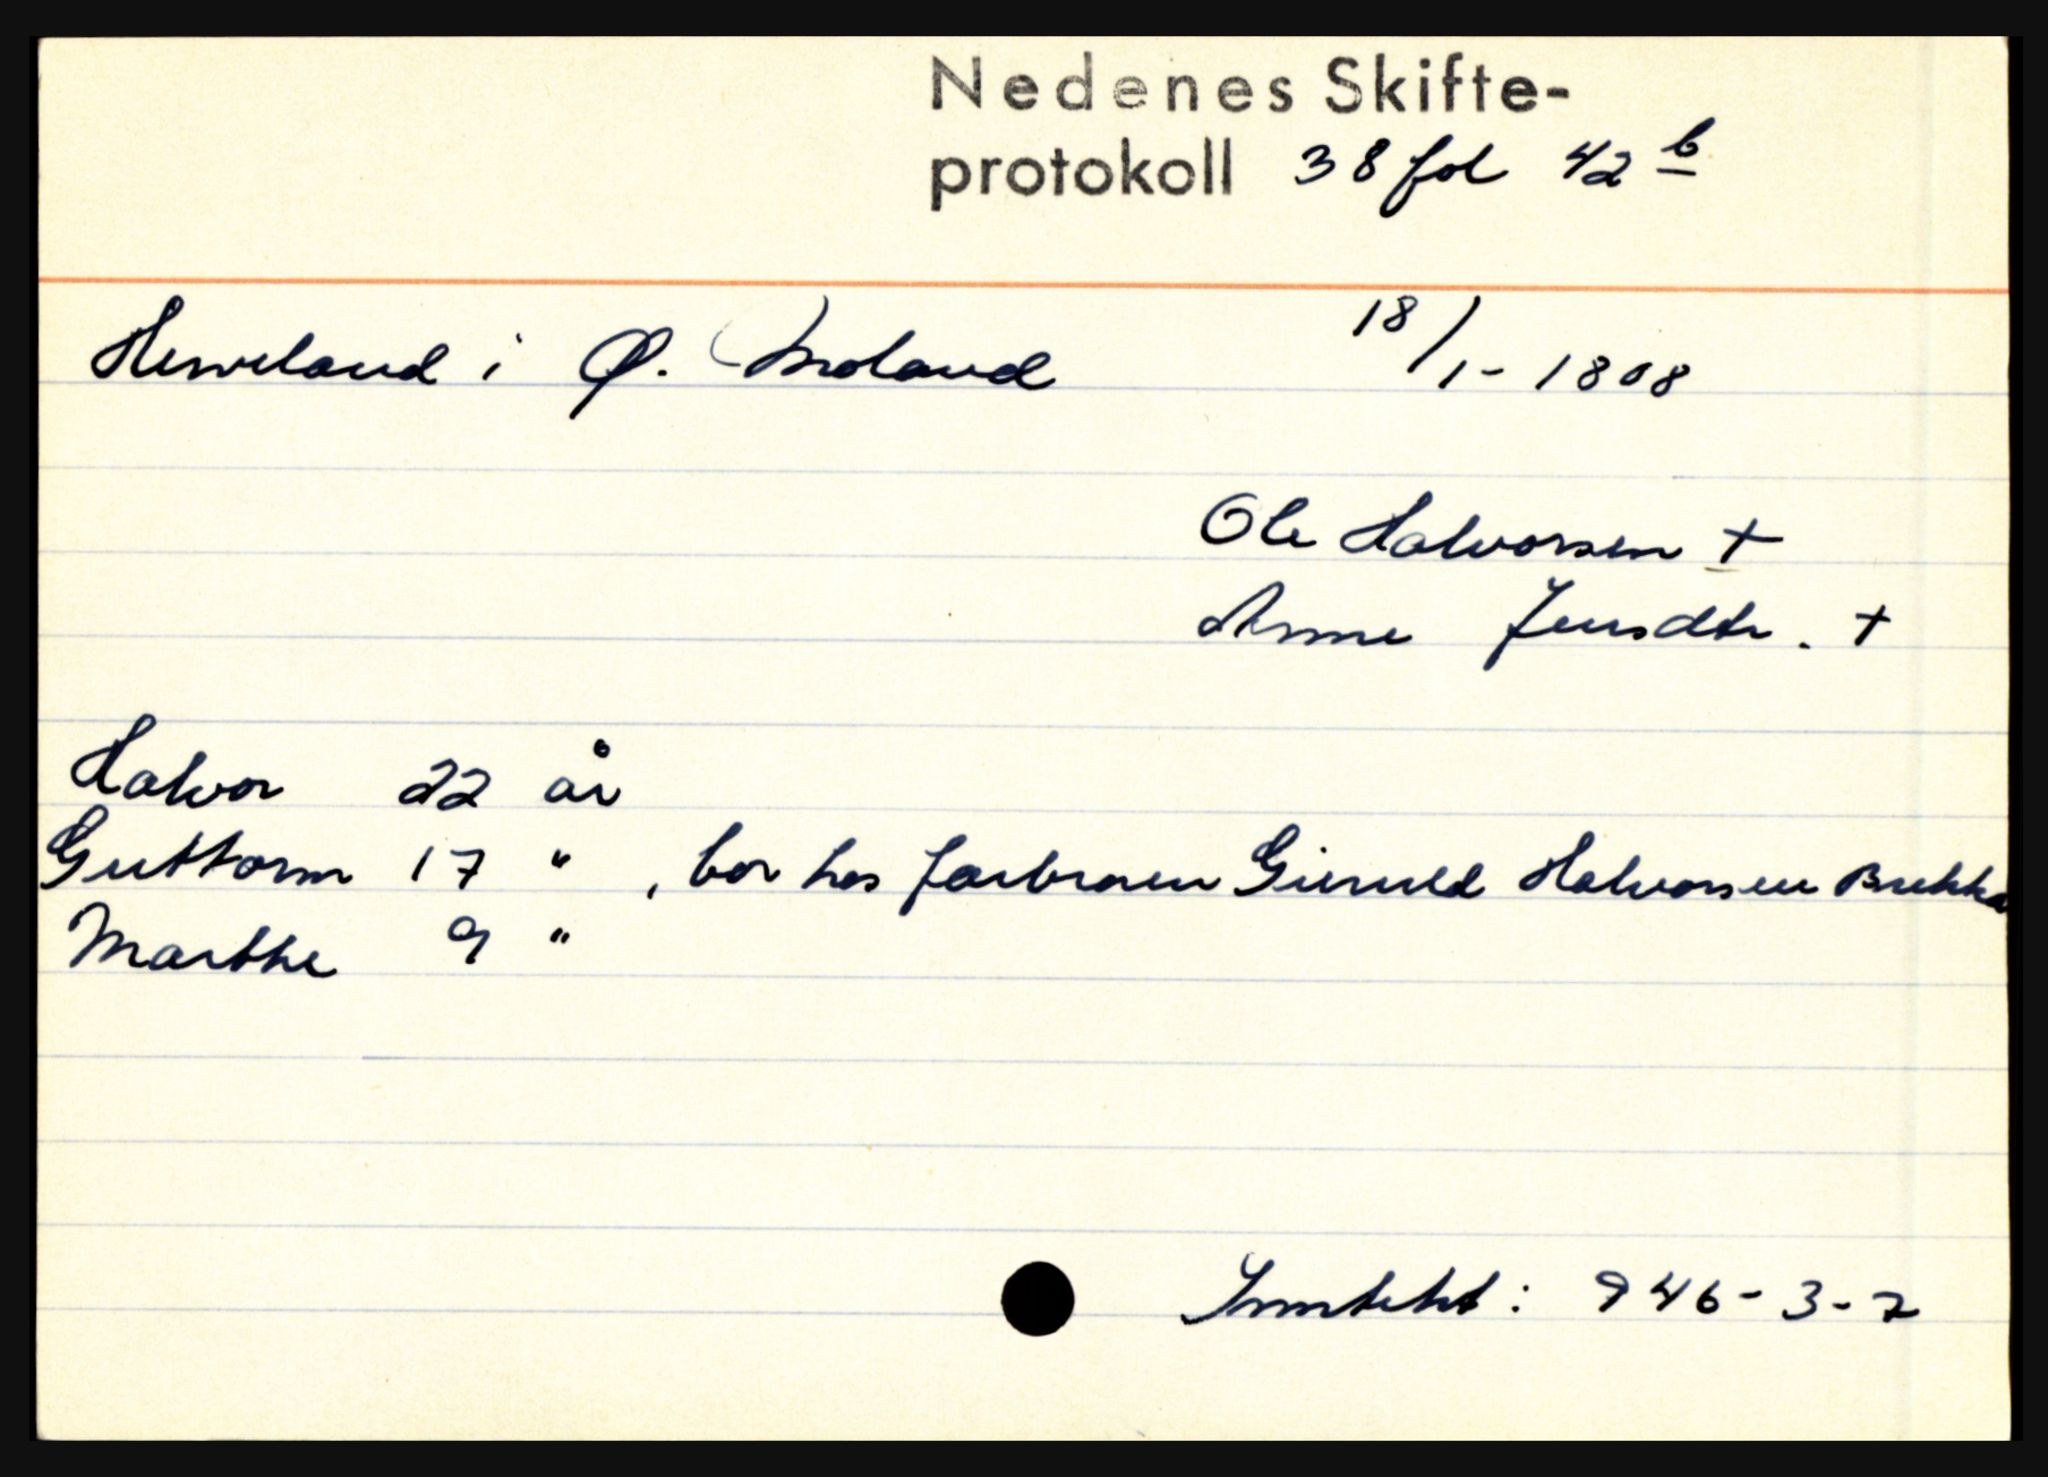 Nedenes Skifte-
protokoll 38 fol 42 b
Herveland i Ø. Moland 18/1-1808
Ole Halvorsen +
Anne Jensdtr. +
Halvor 22 år
Guttorm 17 " , bor hos farbroren Gieruld Halvorsen Brekka
Marthe 9 "
Inntekt: 946-3-2